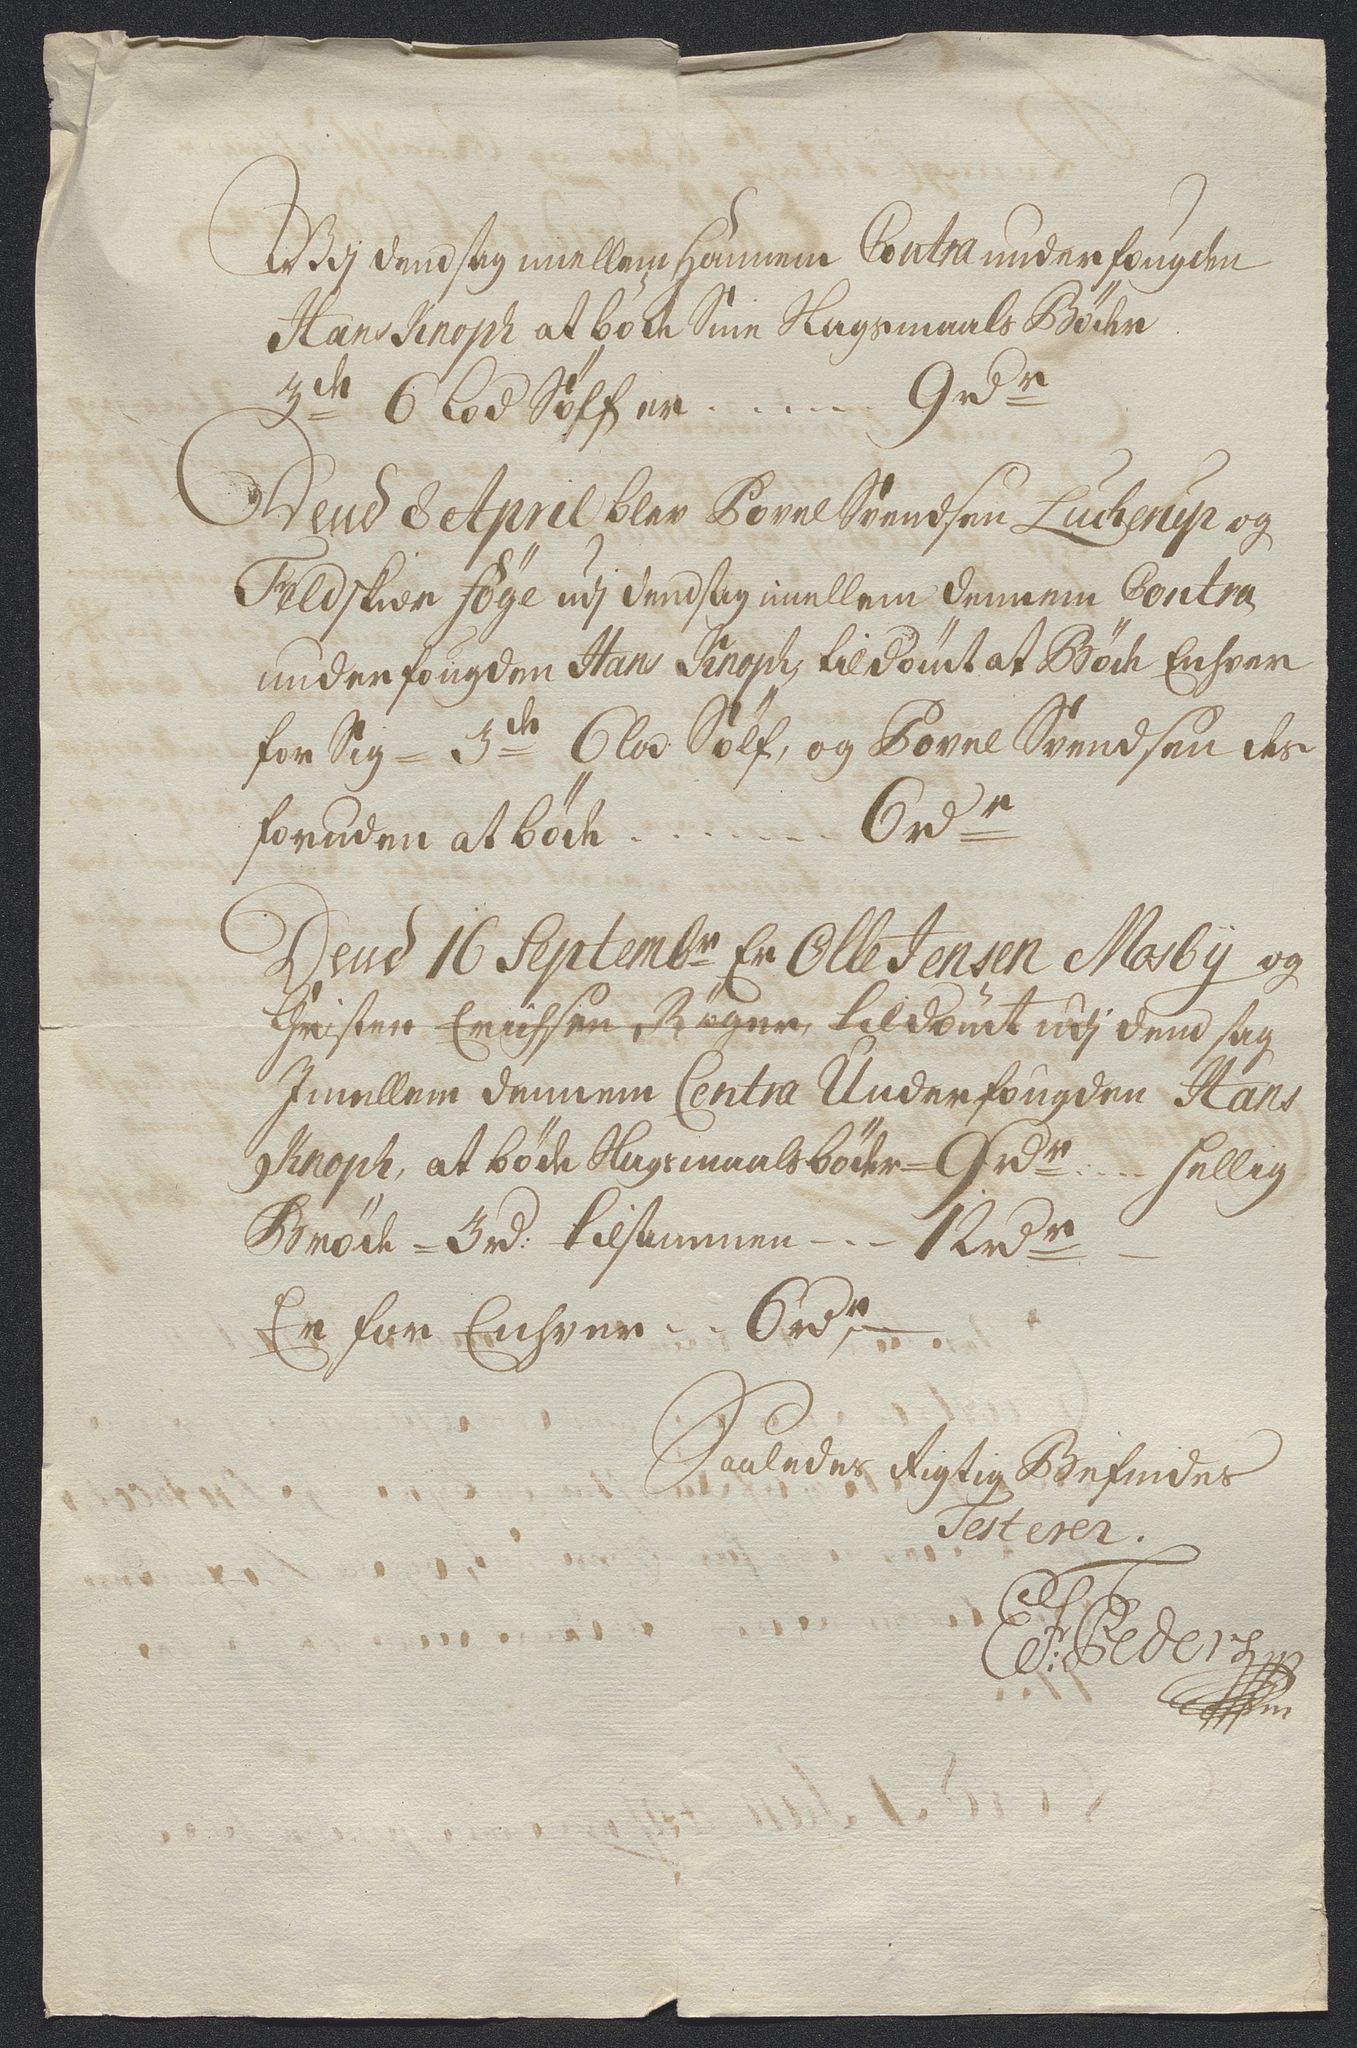 Udj dend sag imellem hannem Contra underfougden
Hans Knoph at bøde Sine Slagsmaals Bøder
3de 6 Lod Sølf er . . . . . . 9 rdr
Dend 8 April blev Povel Svendsen Lucherup og
Feldskier Høÿe udj dend sag imellem dennem Contra
underfougden Hans Knoph, tildømt at Bøde Enhver
for Sig = 3de 6 lod Sølf, og Povel Svendsen des
foruden at bøde . . . . . . . 6 rdr
Dend 16 Septembr Er Olle Jensen Mosbÿ og
Christen Erichsen Røger, tildømt udj dend sag
Imellem dennem Contra Underfougden Hans
Knoph, at bøde Slagsmaalsbøder = 9 rdr . . . . hellig
Brøde = 3 rd: tilsammen - - - 12 rdr
Er for Enhver - - 6 rdr
Saaledes Rigtig Befindes
Testerer.
Pedersen